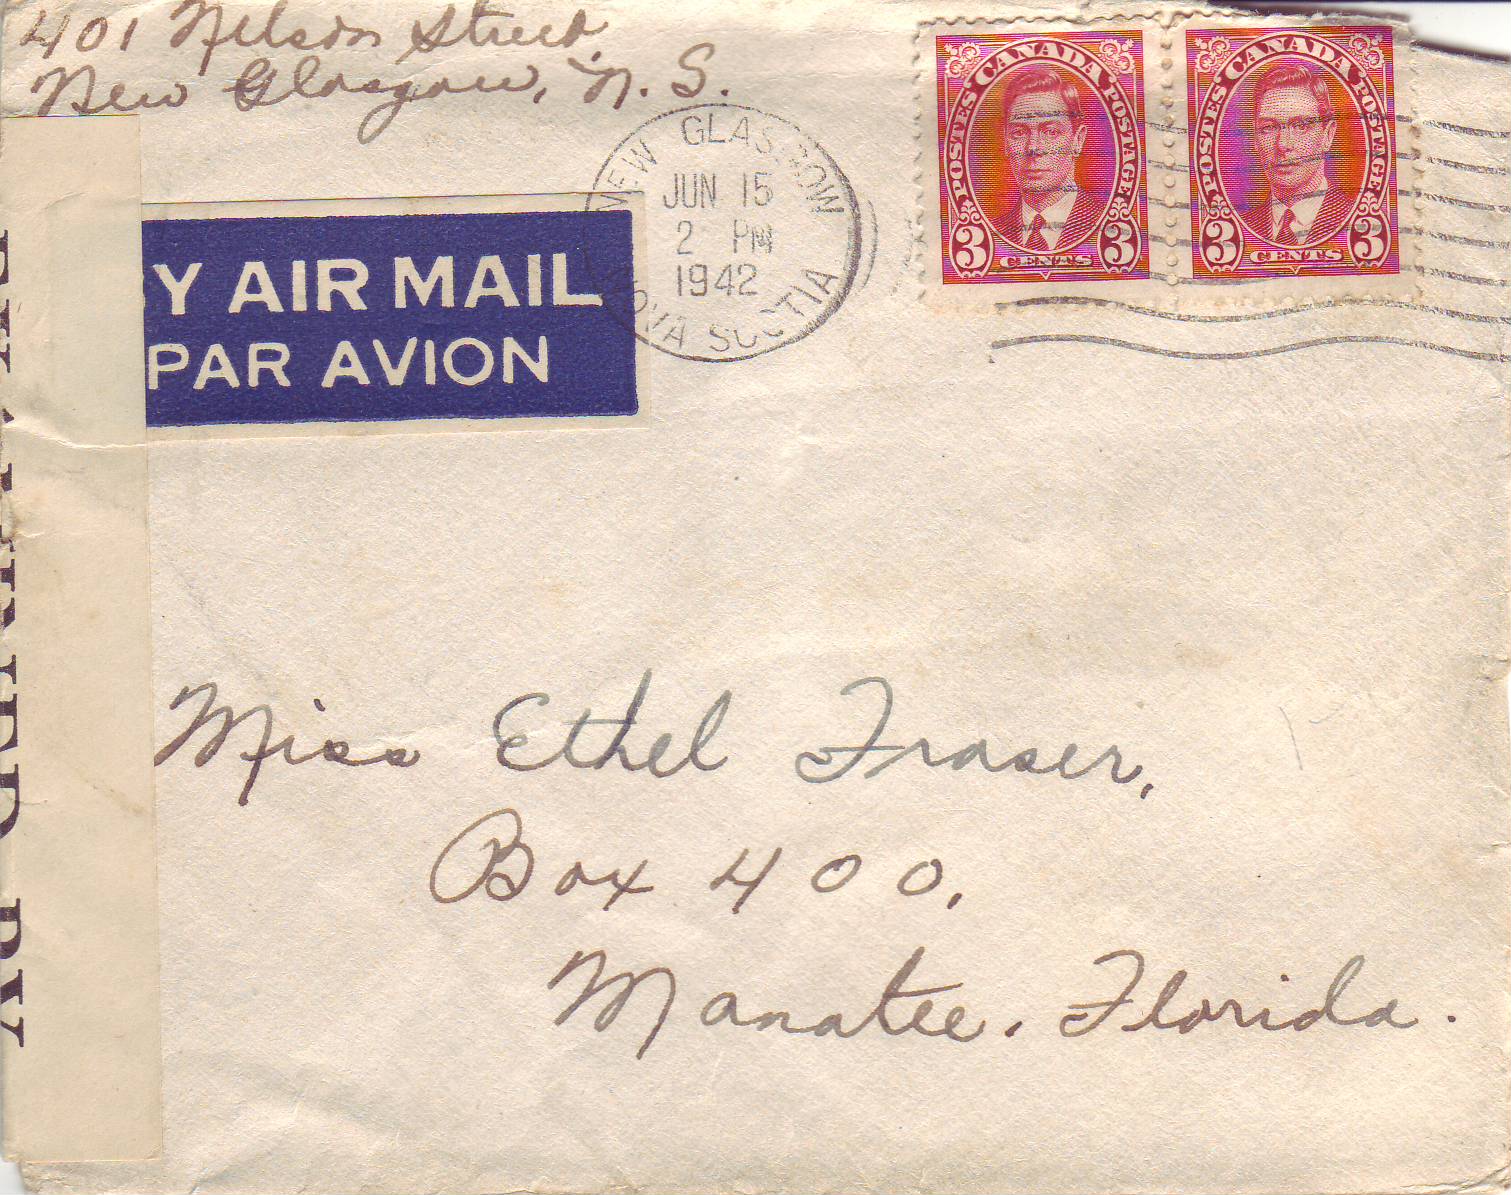 401 Nelson Street,
New Glasgow, N. S.
NEW GLASGOW
JUN 15
2 PM
1942
NOVA SCOTIA
CANADA
POSTES POSTAGE
3 CENTS 3
CANADA
POSTES POSTAGE
3 CENTS 3
Y AIR MAIL
PAR AVION
Miss Ethel Fraser,
Box 400,
Manatee, Florida.
BY